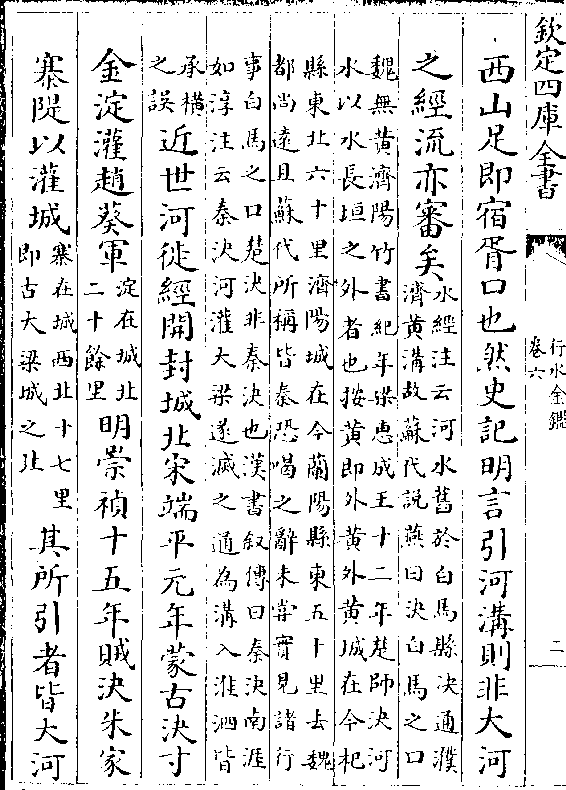 欽定四庫全書
行水金鑑
卷六
二
西山足即宿胥口也然史記明言引河溝則非大河
之經流亦審矣
水經注云河水舊於白馬縣決通濮
濟黄溝故蘇代說燕曰決白馬之口
魏無黄濟陽竹書紀年梁惠成王十二年楚師決河
水以水長垣之外者也按黄即外黄外黄城在今杞
縣東北六十里濟陽城在今蘭陽縣東五十里去魏
都尚遠且蘇代所稱皆秦恐喝之辭未嘗實見諸行
事白馬之口楚決非秦決也漢書叙傳曰秦決南涯
如淳注云秦決河灌大梁遂滅之通為溝入淮泗皆
承橫
之誤
近世河徙經開封城北宋端平元年蒙古決寸
金淀灌趙葵軍
淀在城北
二十餘里
明崇禎十五年賊決朱家
寨隄以灌城
寨在城西北十七里
即古大梁城之北
其所引者皆大河